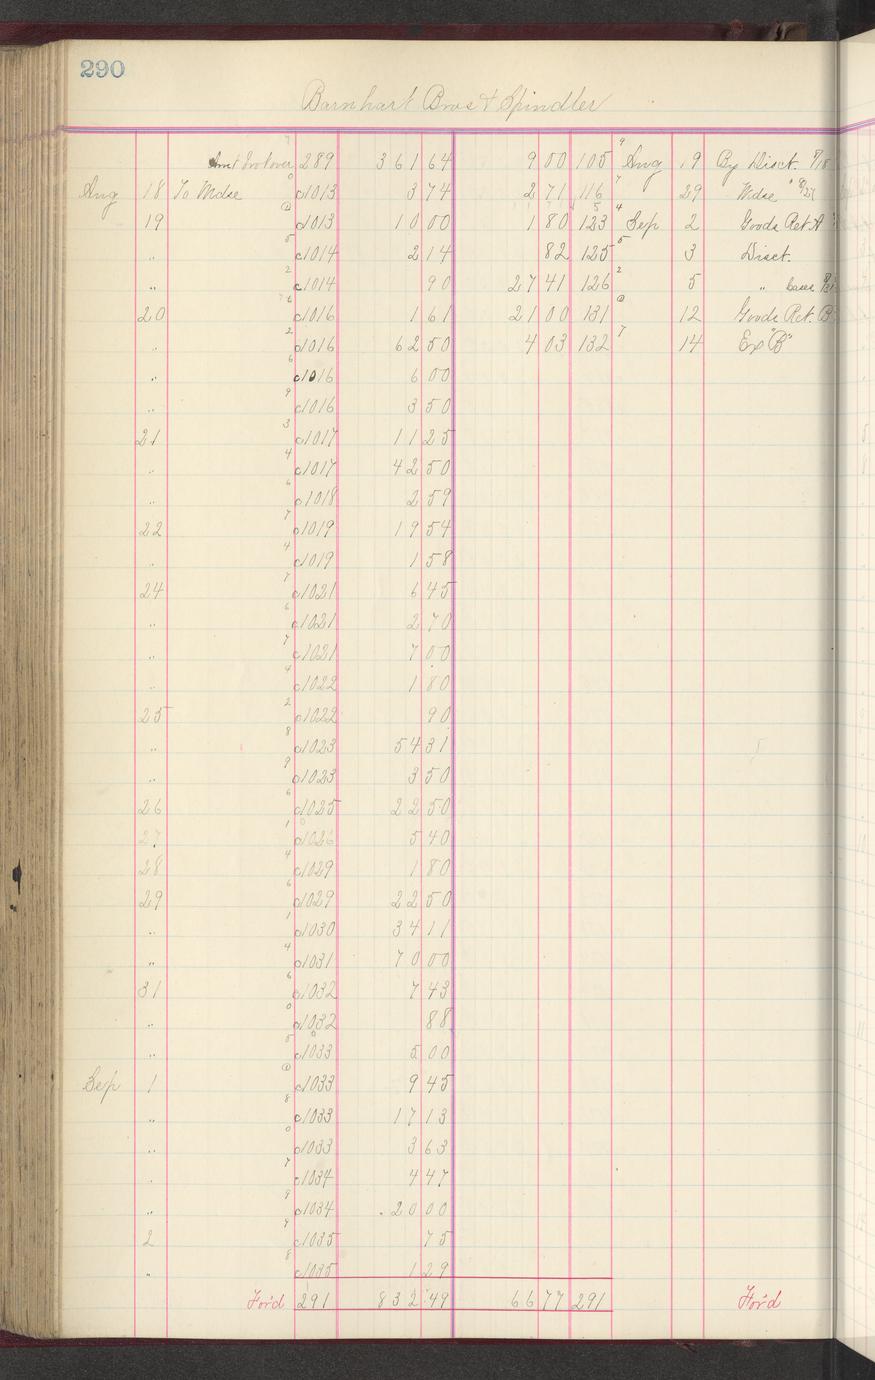 290
Barnhart Bros & Spindler
Amt Brot over 289 361 64 9 00 105 9 Aug 19 By Disct. 8/18
Aug 18 To Mdse 0 c1013 3 74 2 71 116 7 29 Mdse " 8/27
19 @ c1013 10 00 1 80 123 4 Sep 2 Goods Ret. A
" 5 c1014 2 14 82 125 5 3 Disct.
" 2 c1014 90 27 41 126 2 5 "
20 6 c1016 1 61 21 00 131 @ 12 Goods Ret. B
" 2 c1016 62 50 4 03 132 7 14 Ex "B"
" 6 c1016 6 00
" 9 c1016 3 50
21 3 c1017 11 25
" 4 c1017 42 50
" 6 c1018 2 59
22 7 c1019 19 54
" 4 c1019 1 58
24 7 c1021 6 45
" 6 c1021 2 70
" 7 c1021 7 00
" 4 c1022 1 80
25 2 c1022 90
" 8 c1023 54 31
" 9 c1023 3 50
26 6 c1025 22 50
27 1 c1026 5 40
28 4 c1029 1 80
29 6 c1029 22 50
" 1 c1030 34 11
" 4 c1031 70 00
31 6 c1032 7 43
" 0 c1032 88
" 5 c1033 5 00
Sep 1 @ c1033 9 45
" 8 c1033 17 13
" 0 c1033 3 63
" 7 c1034 4 47
" 9 c1034 20 00
2 9 c1035 75
" 8 c1035 1 29
For'd 291 832 49 66 77 291 For'd